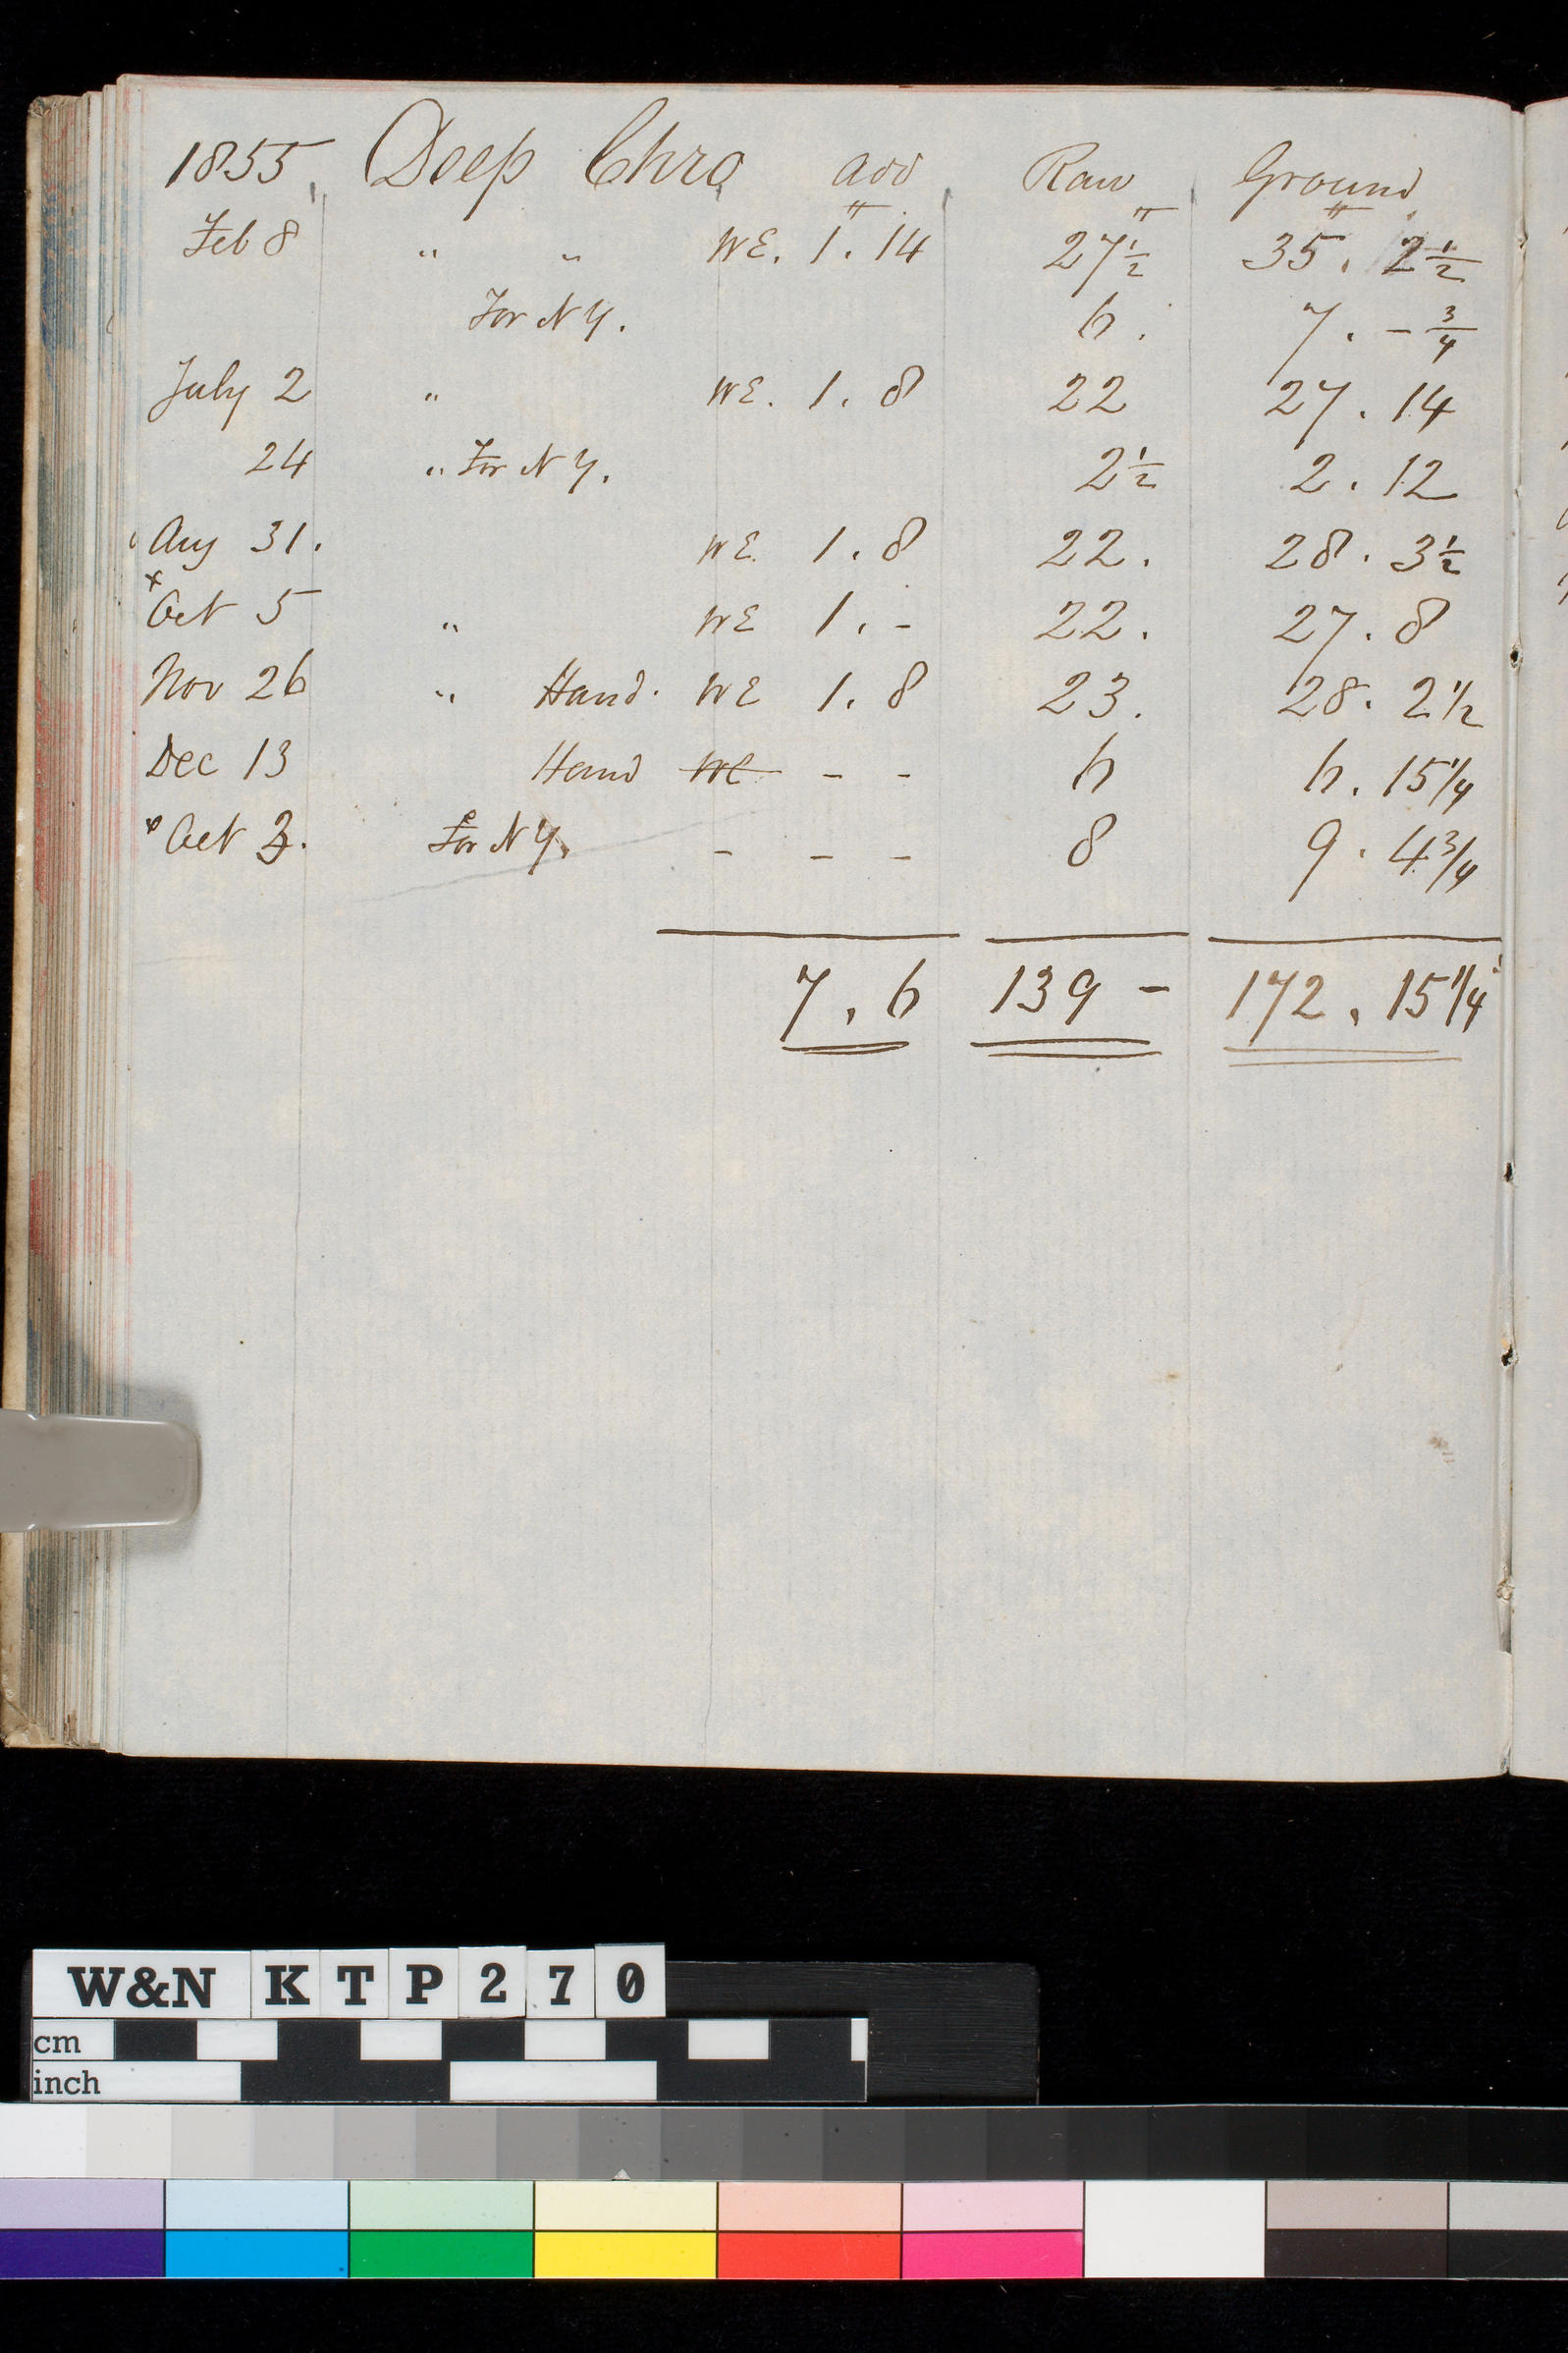 1855 Deep Chro add Raw Ground
Feb 8 " " WE. 1.14 27½ 35.2½
" For NY. 6. 7.-¾
July 2 " WE. 1.8 22 27.14
24 " For NY. 2½ 2.12
Aug 31. WE. 1.8 22. 28.3½
x Oct 5 " WE 1.- 22. 27.8
Nov 26 " Hand. WE 1.8 23. 28.2½
Dec 13 Hand WE - - 6 6.15¼
Oct 3. For NY. - - - 8 9.4¾
7.6 139 - 172.15¼
W&N KTP270
cm
inch